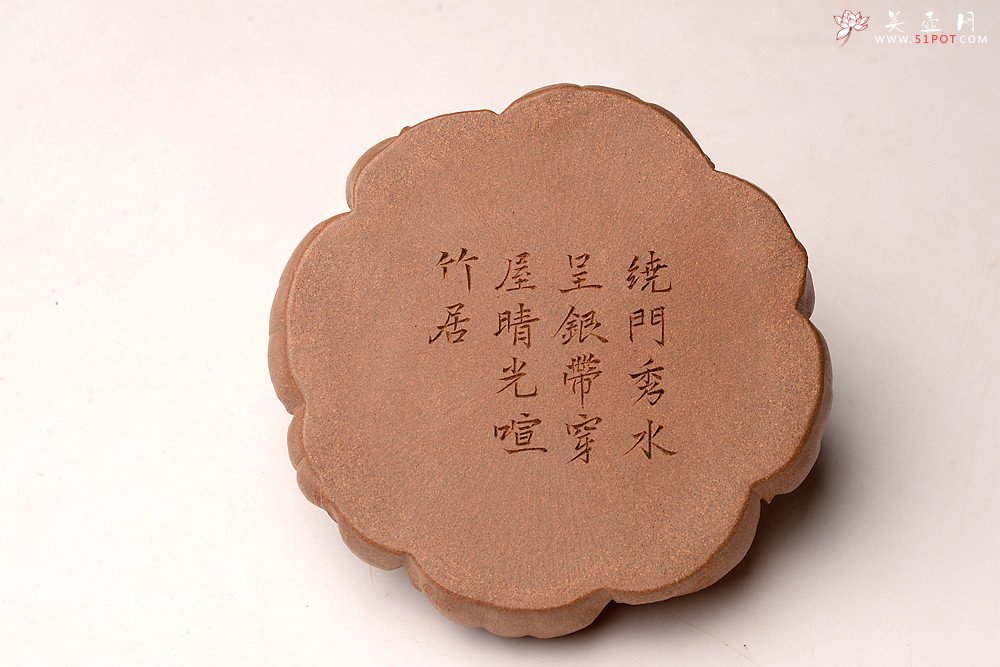 美壶月
WWW.51POT.COM
绕門秀水
呈銀帶穿
屋晴光喧
竹居